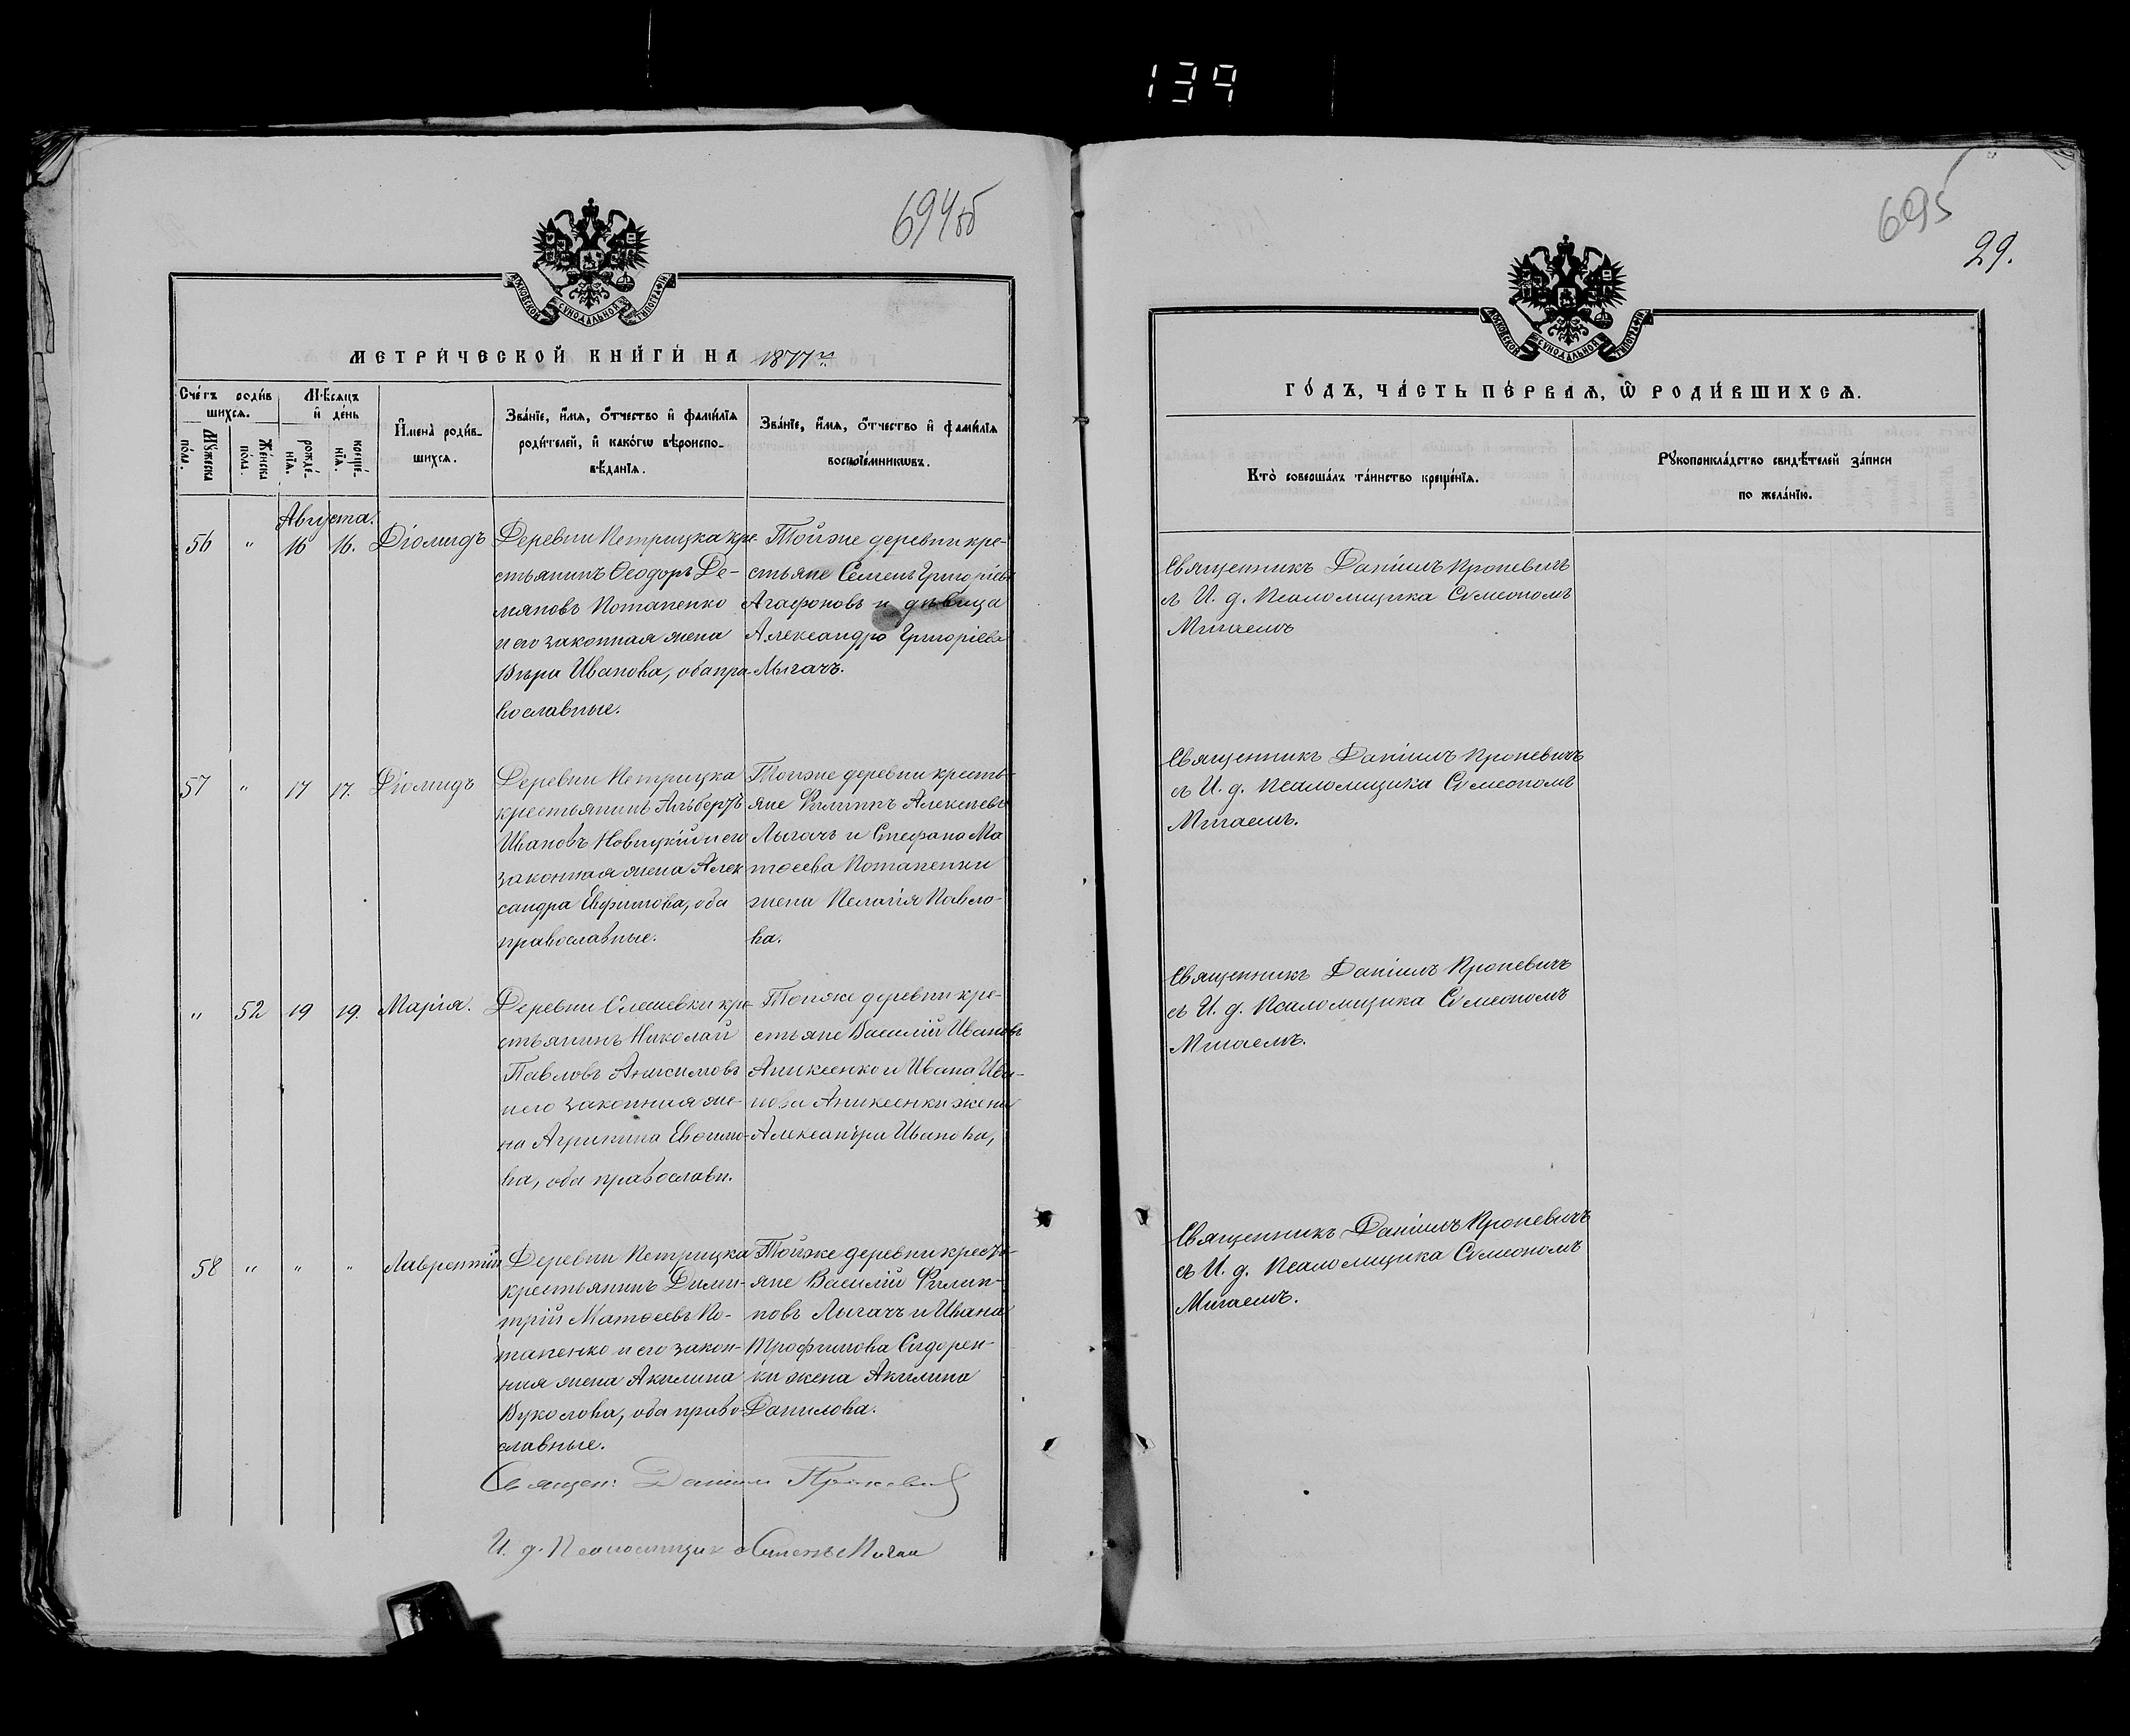 139
694об
МОСКОВСКОЙ СѴНОДАЛЬНОЙ ТИПОГРАФІИ
МЕТРИ́ЧЕСКОЙ КНИ́ГИ НА 1877й
Сче́тъ роди́вшихся.
Мѣ́сяцъ и҆ де́нь
Мꙋ́жеска по́ла.
Же́нска по́ла.
рожде́нїя.
креще́нїя.
И҆мена̀ роди́вшихся.
Зва́нїе, и҆́мя, ѻ҆́тчество и҆ фами́лїя
роди́телей, и҆ како́гѡ вѣроиспо-
вѣ́данїя.
Зва́нїе, и҆́мя, ѻ҆́тчество и҆ фами́лїя
воспрїе́мникѡвъ.
Августа.
56 " 16 16. Діомидъ
Деревни Петрицка кре-
стьянинъ Ѳеодоръ Де-
мяновъ Потапенко
и его законная жена
Вѣра Иванова, оба пра-
вославные.
Тойже деревни кре-
стьяне Семенъ Григоріевъ
Агафоновъ и дѣвица
Александра Григоріева
Лыгачъ.
57 " 17 17. Діомидъ
Деревни Петрицка
крестьянинъ Альбертъ
Ивановъ Новицкій и его
законная жена Алек
сандра Евфимова, оба
православные.
Тойже деревни кресть-
яне Филиппъ Алексѣевъ
Лыгачъ и Стефана Ма
тѳеева Потапенки
жена Пелагія Павло-
ва.
" 52 19 19. Марія.
Деревни Олешевки кре-
стьянинъ Николай
Павловъ Анисимовъ
и его законная же-
на Агрипина Евѳимо-
ва, оба православн.
Тойже деревни кре-
стьяне Василій Ивановъ
Аникеенко и Ивана Ива-
нова Аникеенки жена
Александра Иванова,
58 " " " Лаврентій
Деревни Петрицка
крестьянинъ Дими-
трій Матѳеевъ По-
тапенко и его закон-
ная жена Акилина
Вуколова, оба право
славные.
Тойже деревни кресть-
яне Василій Филип-
повъ Лыгачъ и Ивана
Трофимова Сидорен-
ки жена Акилина
Данилова.
Священ: Даніилъ
И. д. Псаломщика
695
29.
МОСКОВСКОЙ СѴНОДАЛЬНОЙ ТИПОГРАФІИ
ГО́ДЪ, ЧА́СТЬ ПЕ́РВАЯ, Ѡ҆ РОДИ́ВШИХСЯ.
Кто̀ соверша́лъ та́инство креще́нїя.
Рꙋкоприкла́дство свидѣ́телей за́писи
по жела́нїю.
Священникъ Даніилъ Кроневичъ
съ И. д. Псаломщика Сѵмеономъ
Мигаемъ
Священникъ Даніилъ Кроневичъ
съ И. д. Псаломщика Сѵмеономъ
Мигаемъ.
Священникъ Даніилъ Кроневичъ
съ И. д. Псаломщика Сѵмеономъ
Мигаемъ.
Священникъ Даніилъ Кроневичъ
съ И. д. Псаломщика Сѵмеономъ
Мигаемъ.